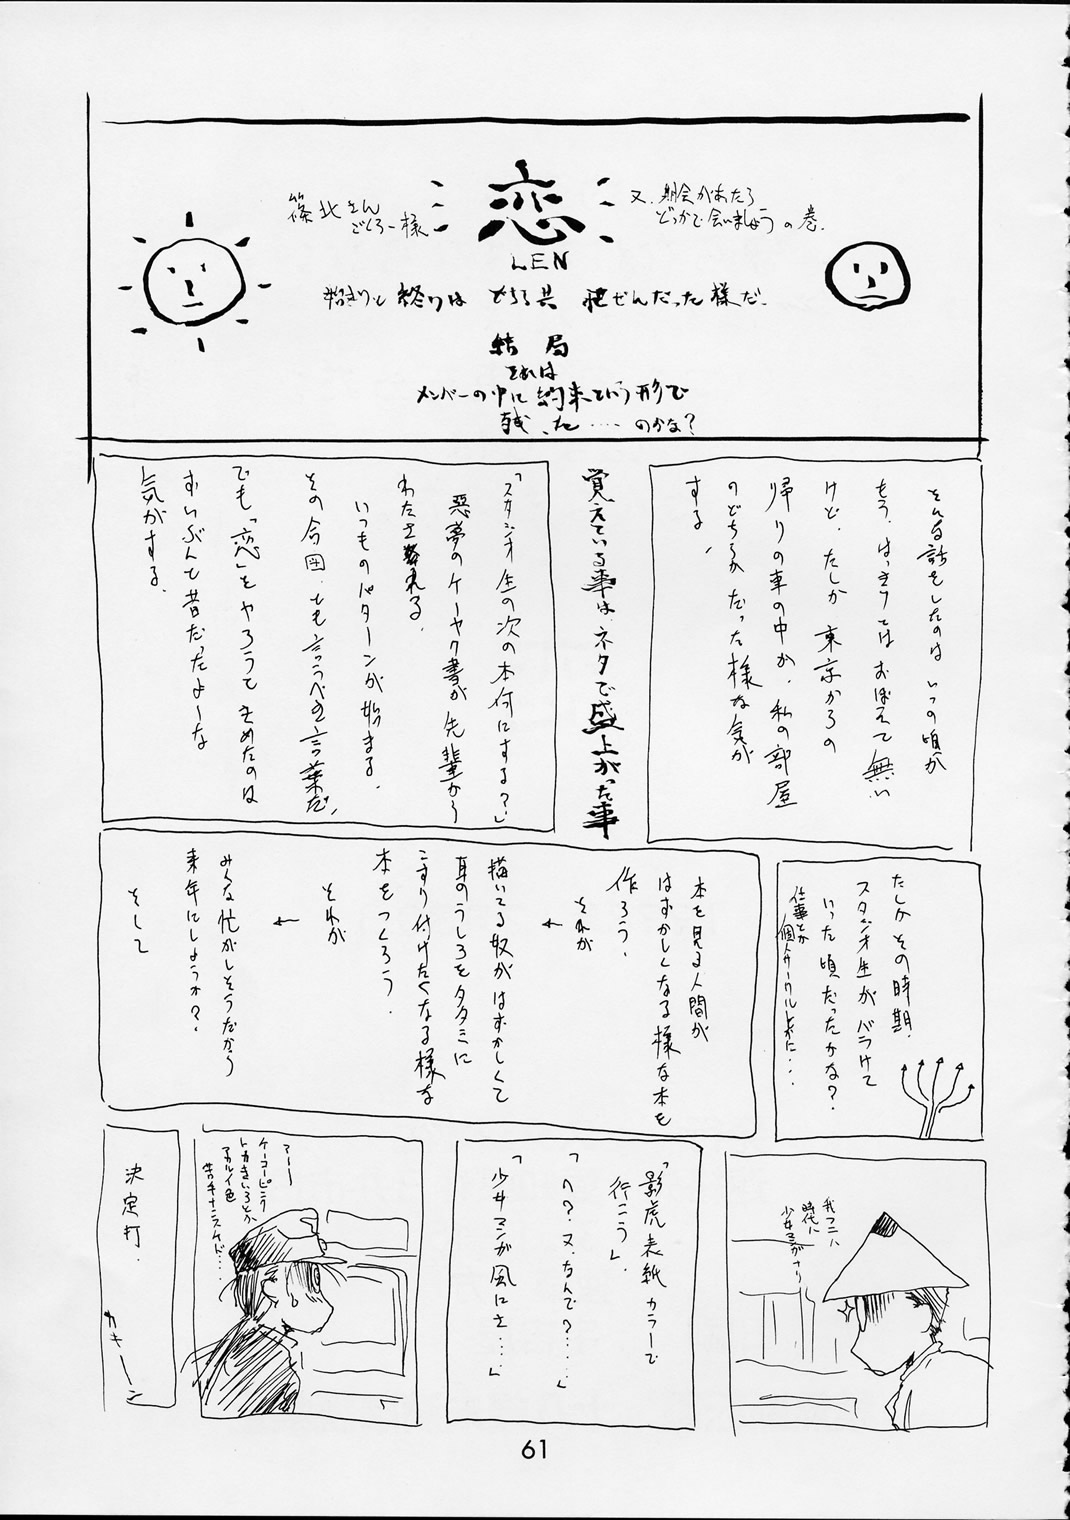 恋
LEN
篠北さん
ごくろー様
又、期会があたら
どっかで会いましょうの巻.
始まりと終りはどちら共 ぜんだった様だ.
結局
それは
メンバーの中に約束という形で
残った……のかな？
そんな話をしたのは いつの頃か
もう、はっきりてはおぼえて無い
けど、たしか 東京からの
帰りの車の中か、私の部屋
のどちらかだった様な気が
する、
覚えている事は、ネタで盛上がった事
「スタジオ生の次の本何にする？」
悪夢のケーヤク書が先輩から
わたされる.
いつものパターンが始まる.
その今回、とも言うべき言葉だ,
でも「恋」をやろうてきめたのは
ずいぶんと昔だったよーな
気がする.
たしか その時期.
スタジオ生が バラけて
いった頃だったかな？
仕事とか
個人サークルとかに・・・
本を見る人間が
はずかしくなる様な本を
作ろう.
それが
←
描いてる奴がはずかしくて
耳のうしろをタタミに
こすり付けたくなる様な
本をつくろう.
それが
←
みんな忙がしそうだから
来年にしようか？
そして
時代ハ
少女マンガナリ
「影虎表紙カラーで
行こう」.
「へ？.又.なんで？……」
「少女マンガ風にさ……」
アーーー
ケーコーピンク
トカきいろとか
アカルイ色
苦手ナンスケド・・・
決定打.
カキーーン
61